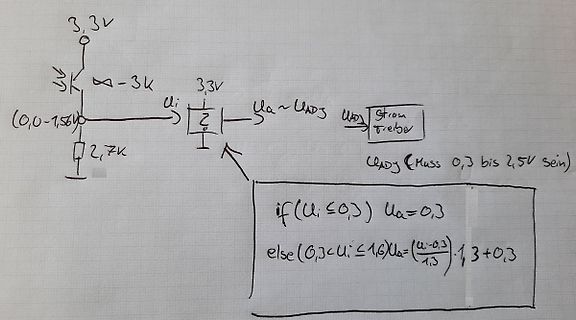 3,3V
∞ - 3k
(0,0-1,56V)
2,7k
Ui
3,3V
?
Ua ~ UADJ
UADJ
Strom
treiber
UADJ (Muss 0,3 bis 2,5V sein)
if (Ui ≤ 0,3) Ua = 0,3
else (0,3 < Ui ≤ 1,6) Ua = (Ui-0,3 / 1,3) · 1,3 + 0,3